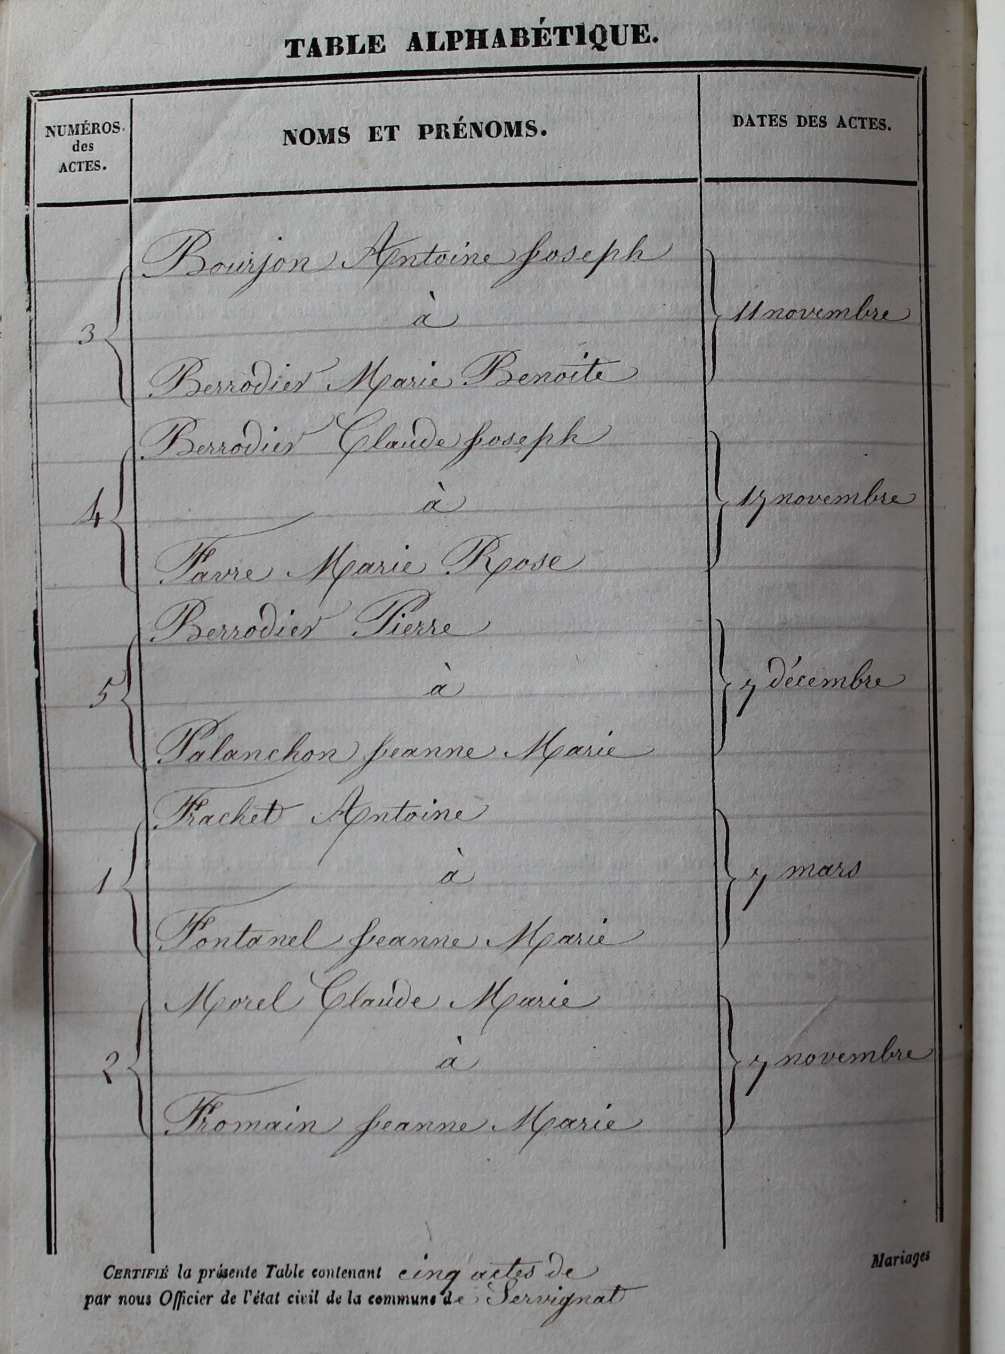 TABLE ALPHABÉTIQUE.
NUMÉROS.
des
ACTES.
NOMS ET PRÉNOMS.
DATES DES ACTES.
Bourjon Antoine Joseph
3 à 11 novembre
Berrodier Marie Benoite
Berrodier Claude Joseph
4 à 17 novembre
Favre Marie Rose
Berrodier Pierre
5 à 7 décembre
Palanchon Jeanne Marie
Frachet Antoine
1 à 7 mars
Fontanel Jeanne Marie
Morel Claude Marie
2 à 7 novembre
Fromain Jeanne Marie
CERTIFIÉ la présente Table contenant cinq actes de Mariages
par nous Officier de l'état civil de la commune de Servignat